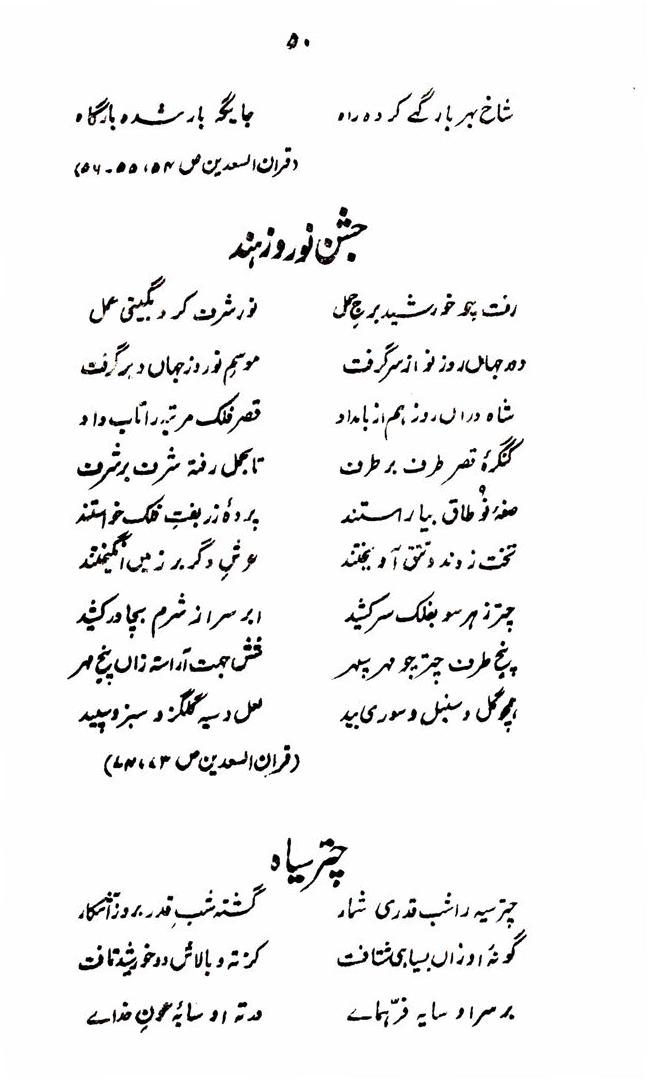 ۵۰
شاخ بہر بار گہے کردہ راہ جایگہ بار شدہ بارگاہ
(قران السعدین ص ۵۴، ۵۵۔۵۶)
جشن نوروز ہند
رفت چو خورشید برج حمل نور شرف کرد بگیتی عمل
دہ جہاں روز نو از سر گرفت موسم نوروز جہاں در گرفت
شاہ دراں روز ہم از بامداد قصر فلک مرتبہ را تاب داد
کنگرۂ قصر طرف بر طرف تا بحمل رفتہ شرف بر شرف
صفۂ نُہ طاق بیاراستند پردۂ زربفتِ فلک خواستند
تخت زدند و تتق آویختند عرشِ دگر بر زمیں انگیختند
چتر ز ہر سو بفلک سر کشید ابر سر از شرم بچادر کشید
پنج طرف چتر چو مہر سپہر شش جہت آراستہ زاں پنج مہر
ہمچو گل و سنبل و سوری بید لعل و سیہ گلگز و سبز و سپید
(قران السعدین ص ۷۳، ۷۴)
چتر سیاہ
چتر سیہ را شب قدری شمار گشتہ شبِ قدر بروز آشکار
گونۂ او زاں بسیاہی شتافت کز تہ و بالاش دو خورشید تافت
بر سر او سایہ فرّ ہماے در تہ او سایۂ عونِ خداے